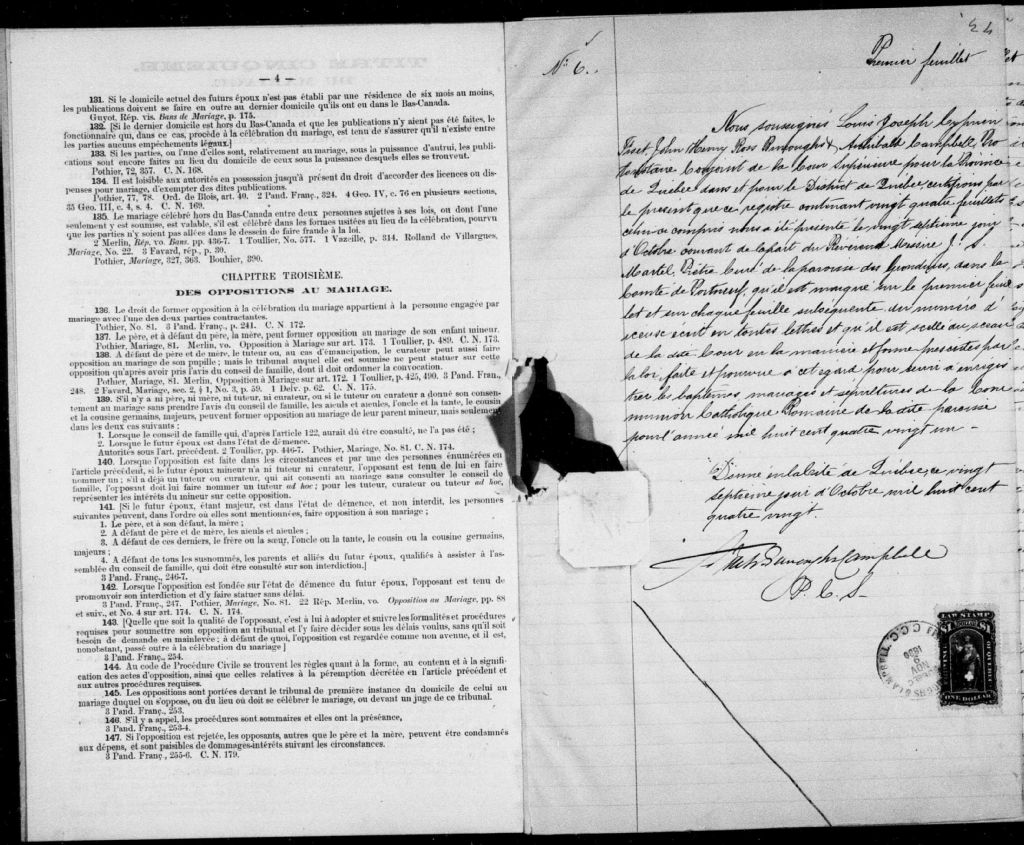 — 4 —
131. Si le domicile actuel des futurs époux n'est pas établi par une résidence de six mois au moins,
les publications doivent se faire en outre au dernier domicile qu'ils ont eu dans le Bas-Canada.
Guyot, Rép. vis. Bans de Mariage, p. 175.
132. [Si le dernier domicile est hors du Bas-Canada et que les publications n'y aient pas été faites, le
fonctionnaire qui, dans ce cas, procède à la célébration du mariage, est tenu de s'assurer qu'il n'existe entre
les parties aucuns empêchements légaux.]
133. Si les parties, ou l'une d'elles sont, relativement au mariage, sous la puissance d'autrui, les publi-
cations sont encore faites au lieu du domicile de ceux sous la puissance desquels elles se trouvent.
Pothier, 72, 357. C. N. 168.
134. Il est loisible aux autorités en possession jusqu'à présent du droit d'accorder des licences ou dis-
penses pour mariage, d'exempter des dites publications.
Pothier, 77, 78. Ord. de Blois, art. 40. 2 Pand. Franç., 324. 4 Geo. IV, c. 76 en plusieurs sections,
35 Geo. III, c. 4, s. 4. C. N. 169.
135. Le mariage célébré hors du Bas-Canada entre deux personnes sujettes à ses lois, ou dont l'une
seulement y est soumise, est valable, s'il est célébré dans les formes usitées au lieu de la célébration, pourvu
que les parties n'y soient pas allées dans le dessein de faire fraude à la loi.
2 Merlin, Rép. vo. Bans. pp. 436-7. 1 Toullier, No. 577. 1 Vazeille, p. 314. Rolland de Villargues,
Mariage, No. 22. 3 Favard, rép., p. 30.
Pothier, Mariage, 327, 363. Bouhier, 390.
CHAPITRE TROISIÈME.
DES OPPOSITIONS AU MARIAGE.
136. Le droit de former opposition à la célébration du mariage appartient à la personne engagée par
mariage avec l'une des deux parties contractantes.
Pothier, No. 81. 3 Pand. Franç., p. 241. C. N. 172.
137. Le père, et à défaut du père, la mère, peut former opposition au mariage de son enfant mineur.
Pothier, Mariage, 81. Merlin, vo. Opposition à Mariage sur art. 173. 1 Toullier, p. 489. C. N. 173.
138. A défaut de père et de mère, le tuteur ou, au cas d'émancipation, le curateur peut aussi faire
opposition au mariage de son pupille ; mais le tribunal auquel elle est soumise ne peut statuer sur cette
opposition qu'après avoir pris l'avis du conseil de famille, dont il doit ordonner la convocation.
Pothier, Mariage, 81. Merlin, Opposition à Mariage sur art. 172. 1 Toullier, p. 425, 490. 3 Pand. Fran.,
248. 2 Favard, Mariage, sec. 2, § 1, No. 3, p. 59. 1 Delv. p. 62. C. N. 175.
139. S'il n'y a ni père, ni mère, ni tuteur, ni curateur, ou si le tuteur ou curateur a donné son consen-
tement au mariage sans prendre l'avis du conseil de famille, les aïeuls et aïeules, l'oncle et la tante, le cousin
et la cousine germains, majeurs, peuvent former opposition au mariage de leur parent mineur, mais seulement
dans les deux cas suivants :
1. Lorsque le conseil de famille qui, d'après l'article 122, aurait dû être consulté, ne l'a pas été ;
2. Lorsque le futur époux est dans l'état de démence.
Autorités sous l'art. précédent. 2 Toullier, pp. 446-7. Pothier, Mariage, No. 81. C. N. 174.
140. Lorsque l'opposition est faite dans les circonstances et par une des personnes énumérées en
l'article précédent, si le futur époux mineur n'a ni tuteur ni curateur, l'opposant est tenu de lui en faire
nommer un ; s'il a déjà un tuteur ou curateur, qui ait consenti au mariage sans consulter le conseil de
famille, l'opposant doit lui faire nommer un tuteur ad hoc ; pour les tuteur, curateur ou tuteur ad hoc,
représenter les intérêts du mineur sur cette opposition.
141. [Si le futur époux, étant majeur, est dans l'état de démence, et non interdit, les personnes
suivantes peuvent, dans l'ordre où elles sont mentionnées, faire opposition à son mariage ;
1. Le père, et à son défaut, la mère ;
2. A défaut de père et de mère, les aïeuls et aïeules ;
3. A défaut de ces derniers, le frère ou la sœur, l'oncle ou la tante, le cousin ou la cousine germains,
majeurs ;
4. A défaut de tous les susnommés, les parents et alliés du futur époux, qualifiés à assister à l'as-
semblée du conseil de famille, qui doit être consulté sur son interdiction.]
3 Pand. Franç., 246-7.
142. Lorsque l'opposition est fondée sur l'état de démence du futur époux, l'opposant est tenu de
promouvoir son interdiction et d'y faire statuer sans délai.
3 Pand. Franç., 247. Pothier, Mariage, No. 81. 22 Rép. Merlin, vo. Opposition au Mariage, pp. 88
et suiv., et No. 4 sur art. 174. C. N. 174.
143. [Quelle que soit la qualité de l'opposant, c'est à lui à adopter et suivre les formalités et procédures
requises pour soumettre son opposition au tribunal et l'y faire décider sous les délais voulus, sans qu'il soit
besoin de demande en mainlevée ; à défaut de quoi, l'opposition est regardée comme non avenue, et il est,
nonobstant, passé outre à la célébration du mariage]
3 Pand. Franç., 254.
144. Au code de Procédure Civile se trouvent les règles quant à la forme, au contenu et à la signifi-
cation des actes d'opposition, ainsi que celles relatives à la péremption décrétée en l'article précédent et
aux autres procédures requises.
145. Les oppositions sont portées devant le tribunal de première instance du domicile de celui au
mariage duquel on s'oppose, ou du lieu où doit se célébrer le mariage, ou devant un juge de ce tribunal.
3 Pand. Franç., 253.
146. S'il y a appel, les procédures sont sommaires et elles ont la préséance,
3 Pand. Franç., 253-4.
147. Si l'opposition est rejetée, les opposants, autres que le père et la mère, peuvent être condamnés
aux dépens, et sont paisibles de dommages-intérêts suivant les circonstances.
3 Pand. Franç., 255-6. C. N. 179.
No. 6.
Premier feuillet
Nous soussignés Louis Joseph Cyprien
Fiset, John Henry Ross Burroughs & Archibald Campbell, Pro
tonotaire Conjoint de la Cour Supérieure pour la Province
de Québec dans et pour le District de Québec, certifions par
le présent que ce registre contenant vingt quatre feuillets
celui-ci compris nous a été présenté le vingt septième jour
d'Octobre courant de la part du Révérend Messire J. S.
Martel, Prêtre Curé de la paroisse des Grondines, dans le
Comté de Portneuf, qu'il est marqué sur le premier feuil
let et sur chaque feuille subséquente du numéro d'
iceux écrit en toutes lettres et qu'il est scellé du sceau
de la dite Cour en la manière et forme prescrites par
la loi, faite et pourvue à cet égard pour servir à enrégis
trer les baptêmes mariages et sépultures de la Com
munion Catholique Romaine de la dite paroisse
pour l'année mil huit cent quatre vingt un -
Donné en la cité de Québec, ce vingt
septième jour d'Octobre mil huit cent
quatre vingt
Fiset Burroughs Campbell
P. C. S.
LAW STAMP
$1 $1
ONE DOLLAR
CAMPBELL, P.C.S.
NOV
1880